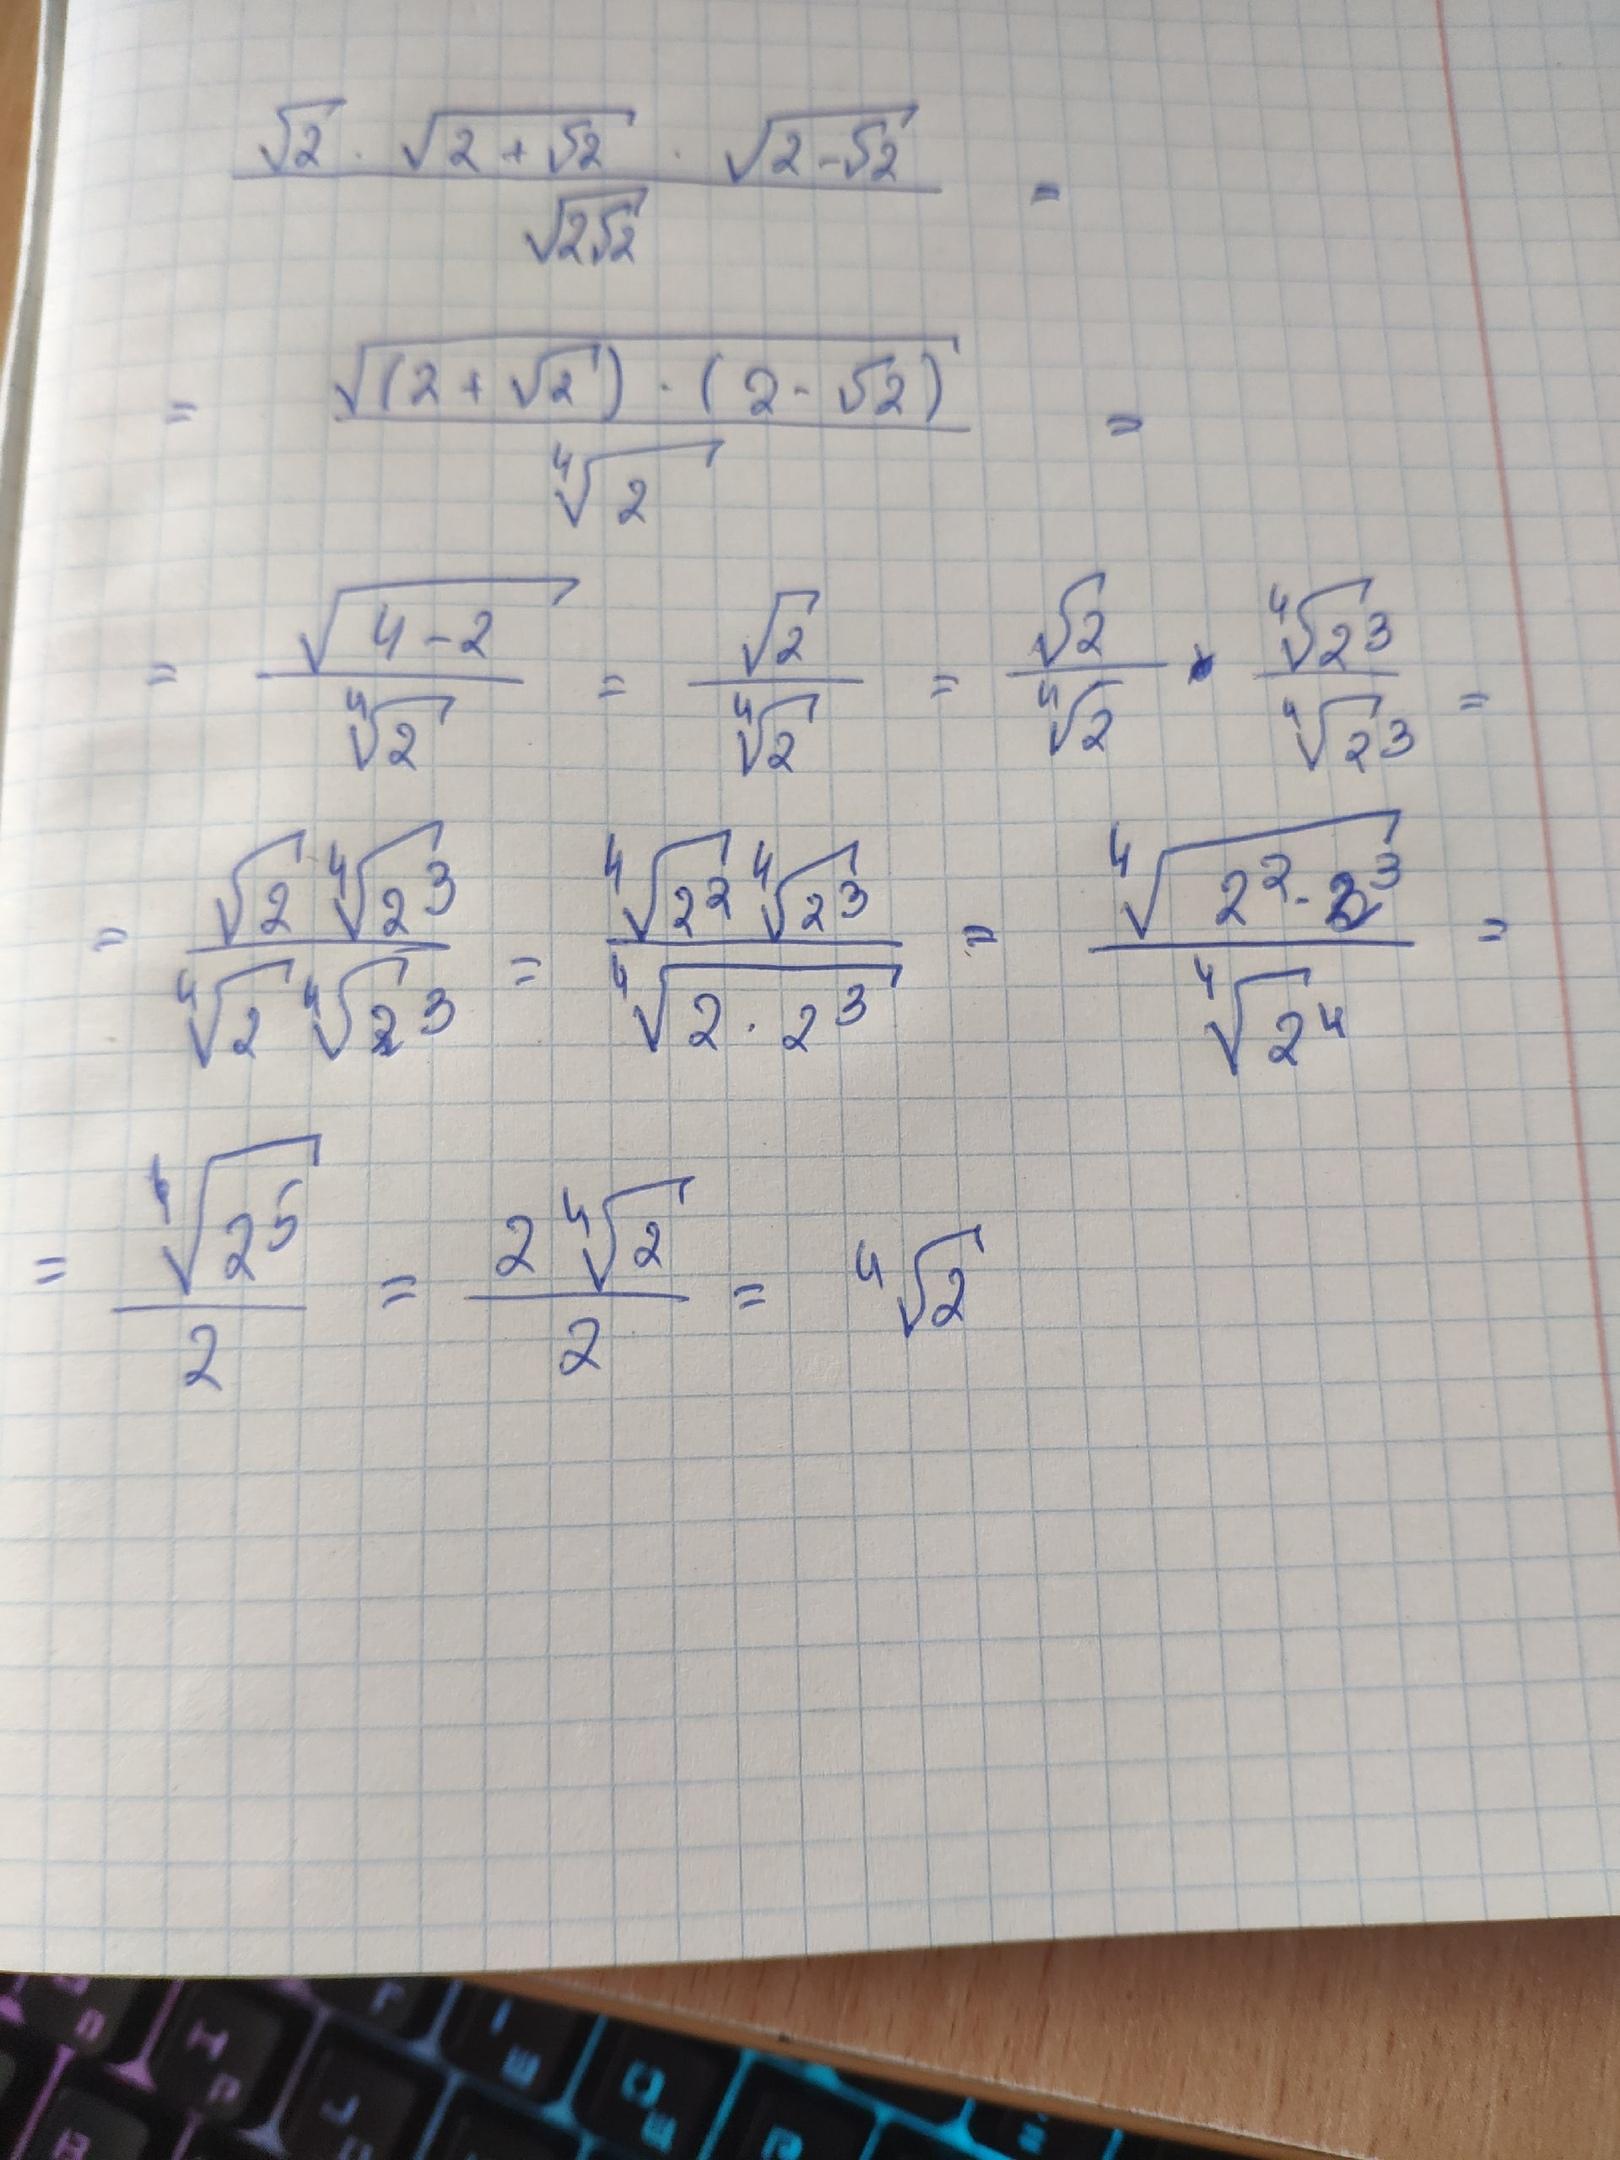 (√2 · √(2 + √2) · √(2 - √2)) / √(2√2) =
= √((2 + √2) · (2 - √2)) / ⁴√2 =
= √(4 - 2) / ⁴√2 = √2 / ⁴√2 = √2 / ⁴√2 · ⁴√2³ / ⁴√2³ =
= (√2 ⁴√2³) / (⁴√2 ⁴√2³) = (⁴√2² ⁴√2³) / ⁴√(2 · 2³) = ⁴√(2² · 2³) / ⁴√2⁴ =
= ⁴√2⁵ / 2 = 2 ⁴√2 / 2 = ⁴√2